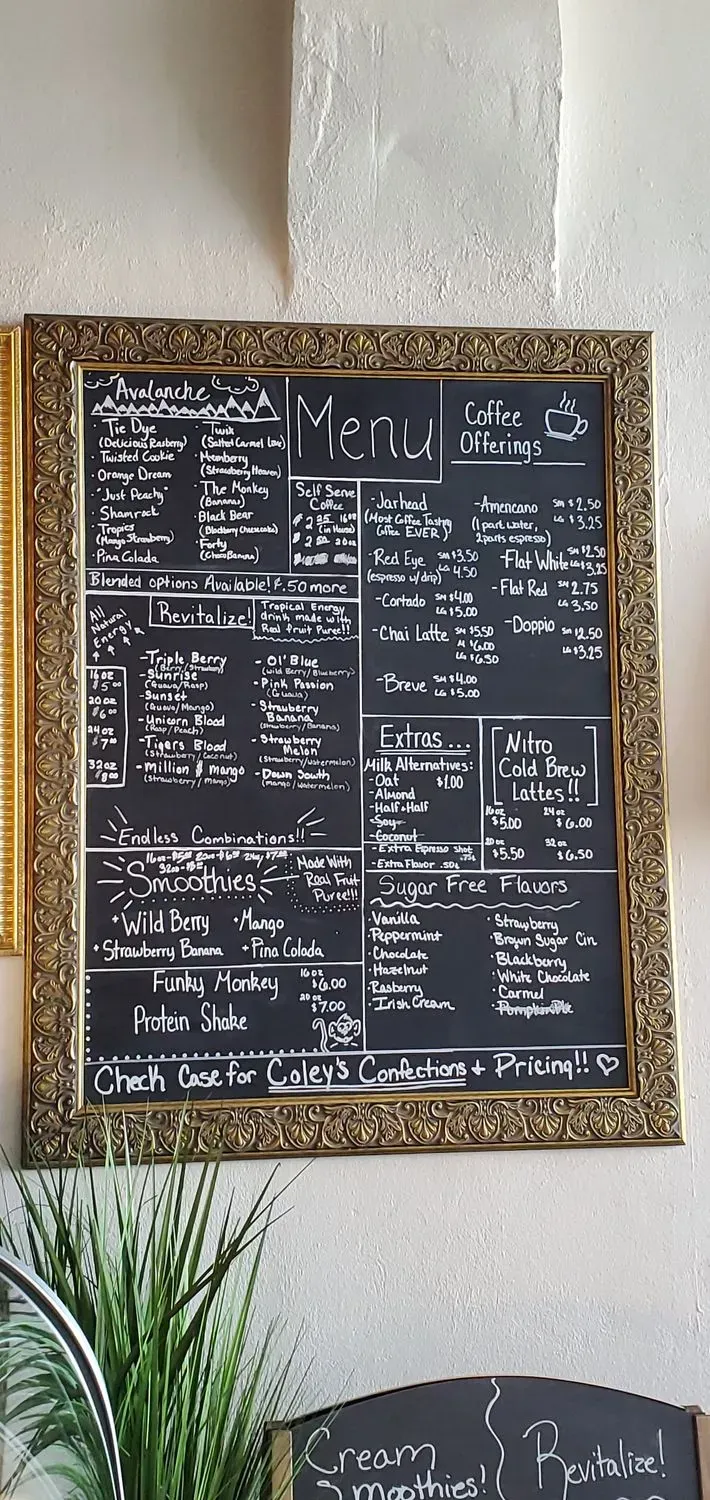 Avalanche
· Tie Dye
(Delicious Rasberry)
· Twisted Cookie
· Orange Dream
· "Just Peachy"
· Shamrock
· Tropics
(Mango Strawberry)
· Pina Colada
· Twix
(Salted Carmel Love)
· Memberry
(Strawberry Heaven)
· The Monkey
(Banana)
· Black Bear
(Blackberry Cheesecake)
· Forty
(Choco Banana)
Blended options Available! .50 more
Menu
Self Serve
Coffee
2.25 16oz
(in House)
2.50 20oz
Coffee
Offerings
-Jarhead
(Most Coffee Tasting
Coffee EVER)
-Red Eye SM $3.50
(espresso w/ drip) LG 4.50
-Cortado SM $4.00
LG $5.00
-Chai Latte SM $5.50
M $6.00
LG $6.50
-Breve SM $4.00
LG $5.00
-Americano SM $2.50
(1 part water, LG $3.25
2 parts espresso)
-Flat White SM $2.50
LG $3.25
-Flat Red SM 2.75
LG 3.50
-Doppio SM $2.50
LG $3.25
All
Natural
Energy
Revitalize!
Tropical Energy
drink made with
Real fruit Puree!!
16oz
$5.00
20oz
$6.00
24oz
$7.00
32oz
$8.00
-Triple Berry
-Sunrise
(Guava/Rasp)
-Sunset
(Guava/Mango)
-Unicorn Blood
(Rasp/Peach)
-Tigers Blood
(Strawberry/Coconut)
-million $ mango
(Strawberry/mango)
- Ol' Blue
(Wild Berry/Blueberry)
- Pink Passion
(Guava)
- Strawberry
Banana
(Strawberry/Banana)
- Strawberry
Melon
(Strawberry/Watermelon)
- Down South
(mango/Watermelon)
Endless Combinations!!
16oz-$5.00 20oz-$6.00 24oz $7.00
32oz-
Smoothies
Made With
Real Fruit
Puree!!!
· Wild Berry · Mango
· Strawberry Banana · Pina Colada
Funky Monkey
Protein Shake
16oz
$6.00
20oz
$7.00
Extras ...
Milk Alternatives:
-Oat $1.00
-Almond
-Half+Half
-Soy
-Coconut
-Extra Espresso Shot .75¢
-Extra Flavor .50¢
Nitro
Cold Brew
Lattes!!
16oz 24oz
$5.00 $6.00
20oz 32oz
$5.50 $6.50
Sugar Free Flavors
·Vanilla
·Peppermint
·Chocolate
·Hazelnut
·Rasberry
·Irish Cream
·Strawberry
·Brown Sugar Cin
·Blackberry
·White Chocolate
·Carmel
·Pumpkin Pie
Check Case for Coley's Confections + Pricing!!
Cream
Smoothies!
Revitalize!